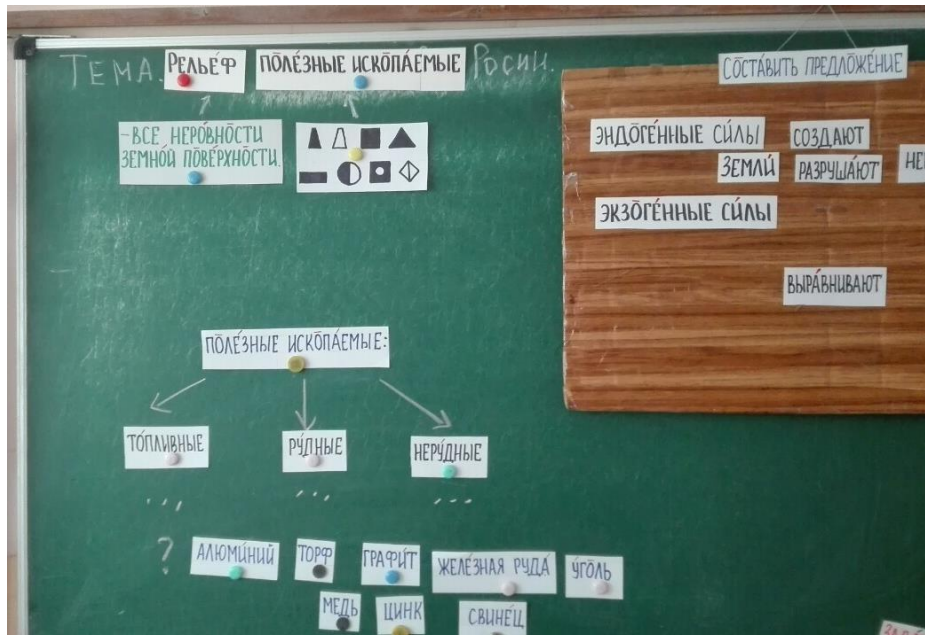 ТЕМА. РЕЛЬЕ́Ф ПОЛЕ́ЗНЫЕ ИСКОПА́ЕМЫЕ РОСИИ.
- ВСЕ НЕРО́ВНОСТИ
ЗЕМНО́Й ПОВЕ́РХНОСТИ.
СОСТА́ВИТЬ ПРЕДЛОЖЕ́НИЕ
ЭНДОГЕ́ННЫЕ СИ́ЛЫ СОЗДАЮТ
ЗЕМЛИ́ РАЗРУША́ЮТ
ЭКЗОГЕ́ННЫЕ СИ́ЛЫ
ВЫРА́ВНИВАЮТ
ПОЛЕ́ЗНЫЕ ИСКОПА́ЕМЫЕ:
ТО́ПЛИВНЫЕ РУ́ДНЫЕ НЕРУ́ДНЫЕ
... ... ...
? АЛЮМИ́НИЙ ТОРФ ГРАФИ́Т ЖЕЛЕ́ЗНАЯ РУДА́ У́ГОЛЬ
МЕДЬ ЦИНК СВИНЕ́Ц